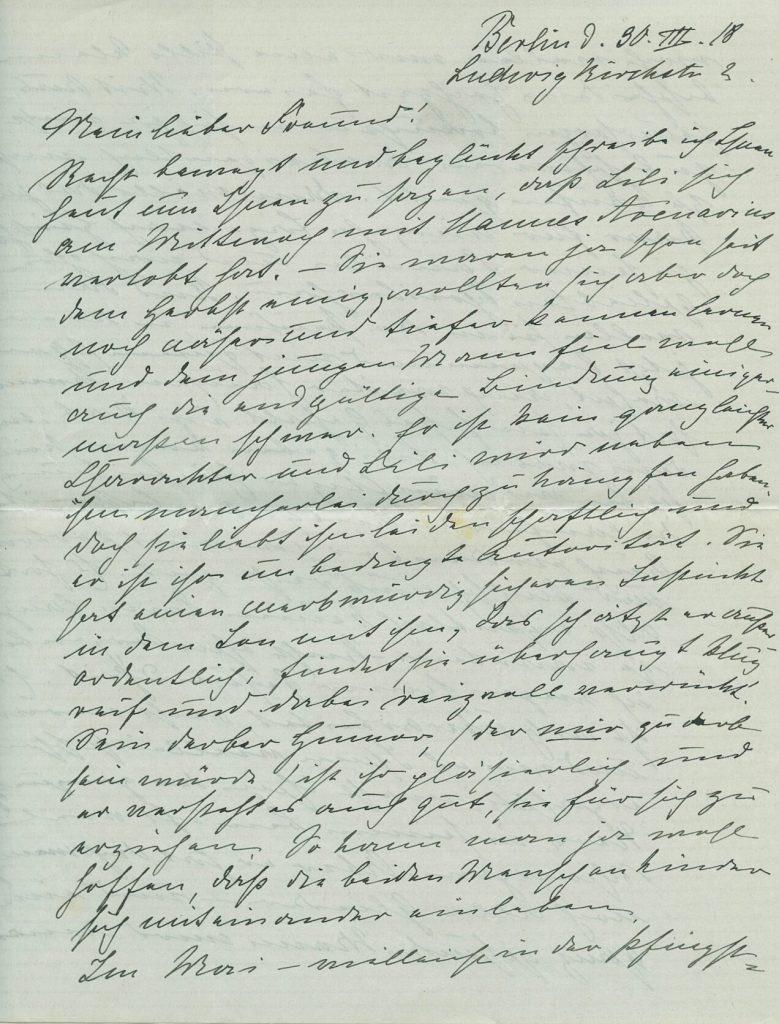 Berlin d. 30. III. 18
Ludwigkirchstr 2.
Mein lieber Freund!
Recht bewegt und beglückt schreibe ich Ihnen
heut um Ihnen zu sagen, daß Lili sich
am Mittwoch mit Hannes Avenarius
verlobt hat. – Sie waren ja schon seit
dem Herbst einig, wollten sich aber doch
noch näher und tiefer kennen lernen
und dem jungen Mann fiel wohl
auch die endgültige Bindung einiger-
maßen schwer. Er ist kein ganz leichter
Charackter und Lili wird neben
ihm mancherlei durchzukämpfen haben,
doch sie liebt ihn leidenschaftlich und
er ist ihr unbedingte Autorität. Sie
hat einen merkwürdig sicheren Instinkt
in dem Ton mit ihm, das schätzt er außer
ordentlich, findet sie überhaupt klug
reif und dabei reizvoll verrückt.
Sein derber Humor, (der mir zu derb
sein würde) ist ihr pläsierlich und
er versteht es auch gut, sie für sich zu
erziehen. So kann man ja wohl
hoffen, daß die beiden Menschenkinder
sich miteinander einleben.
Im Mai – vielleicht in der Pfingst=